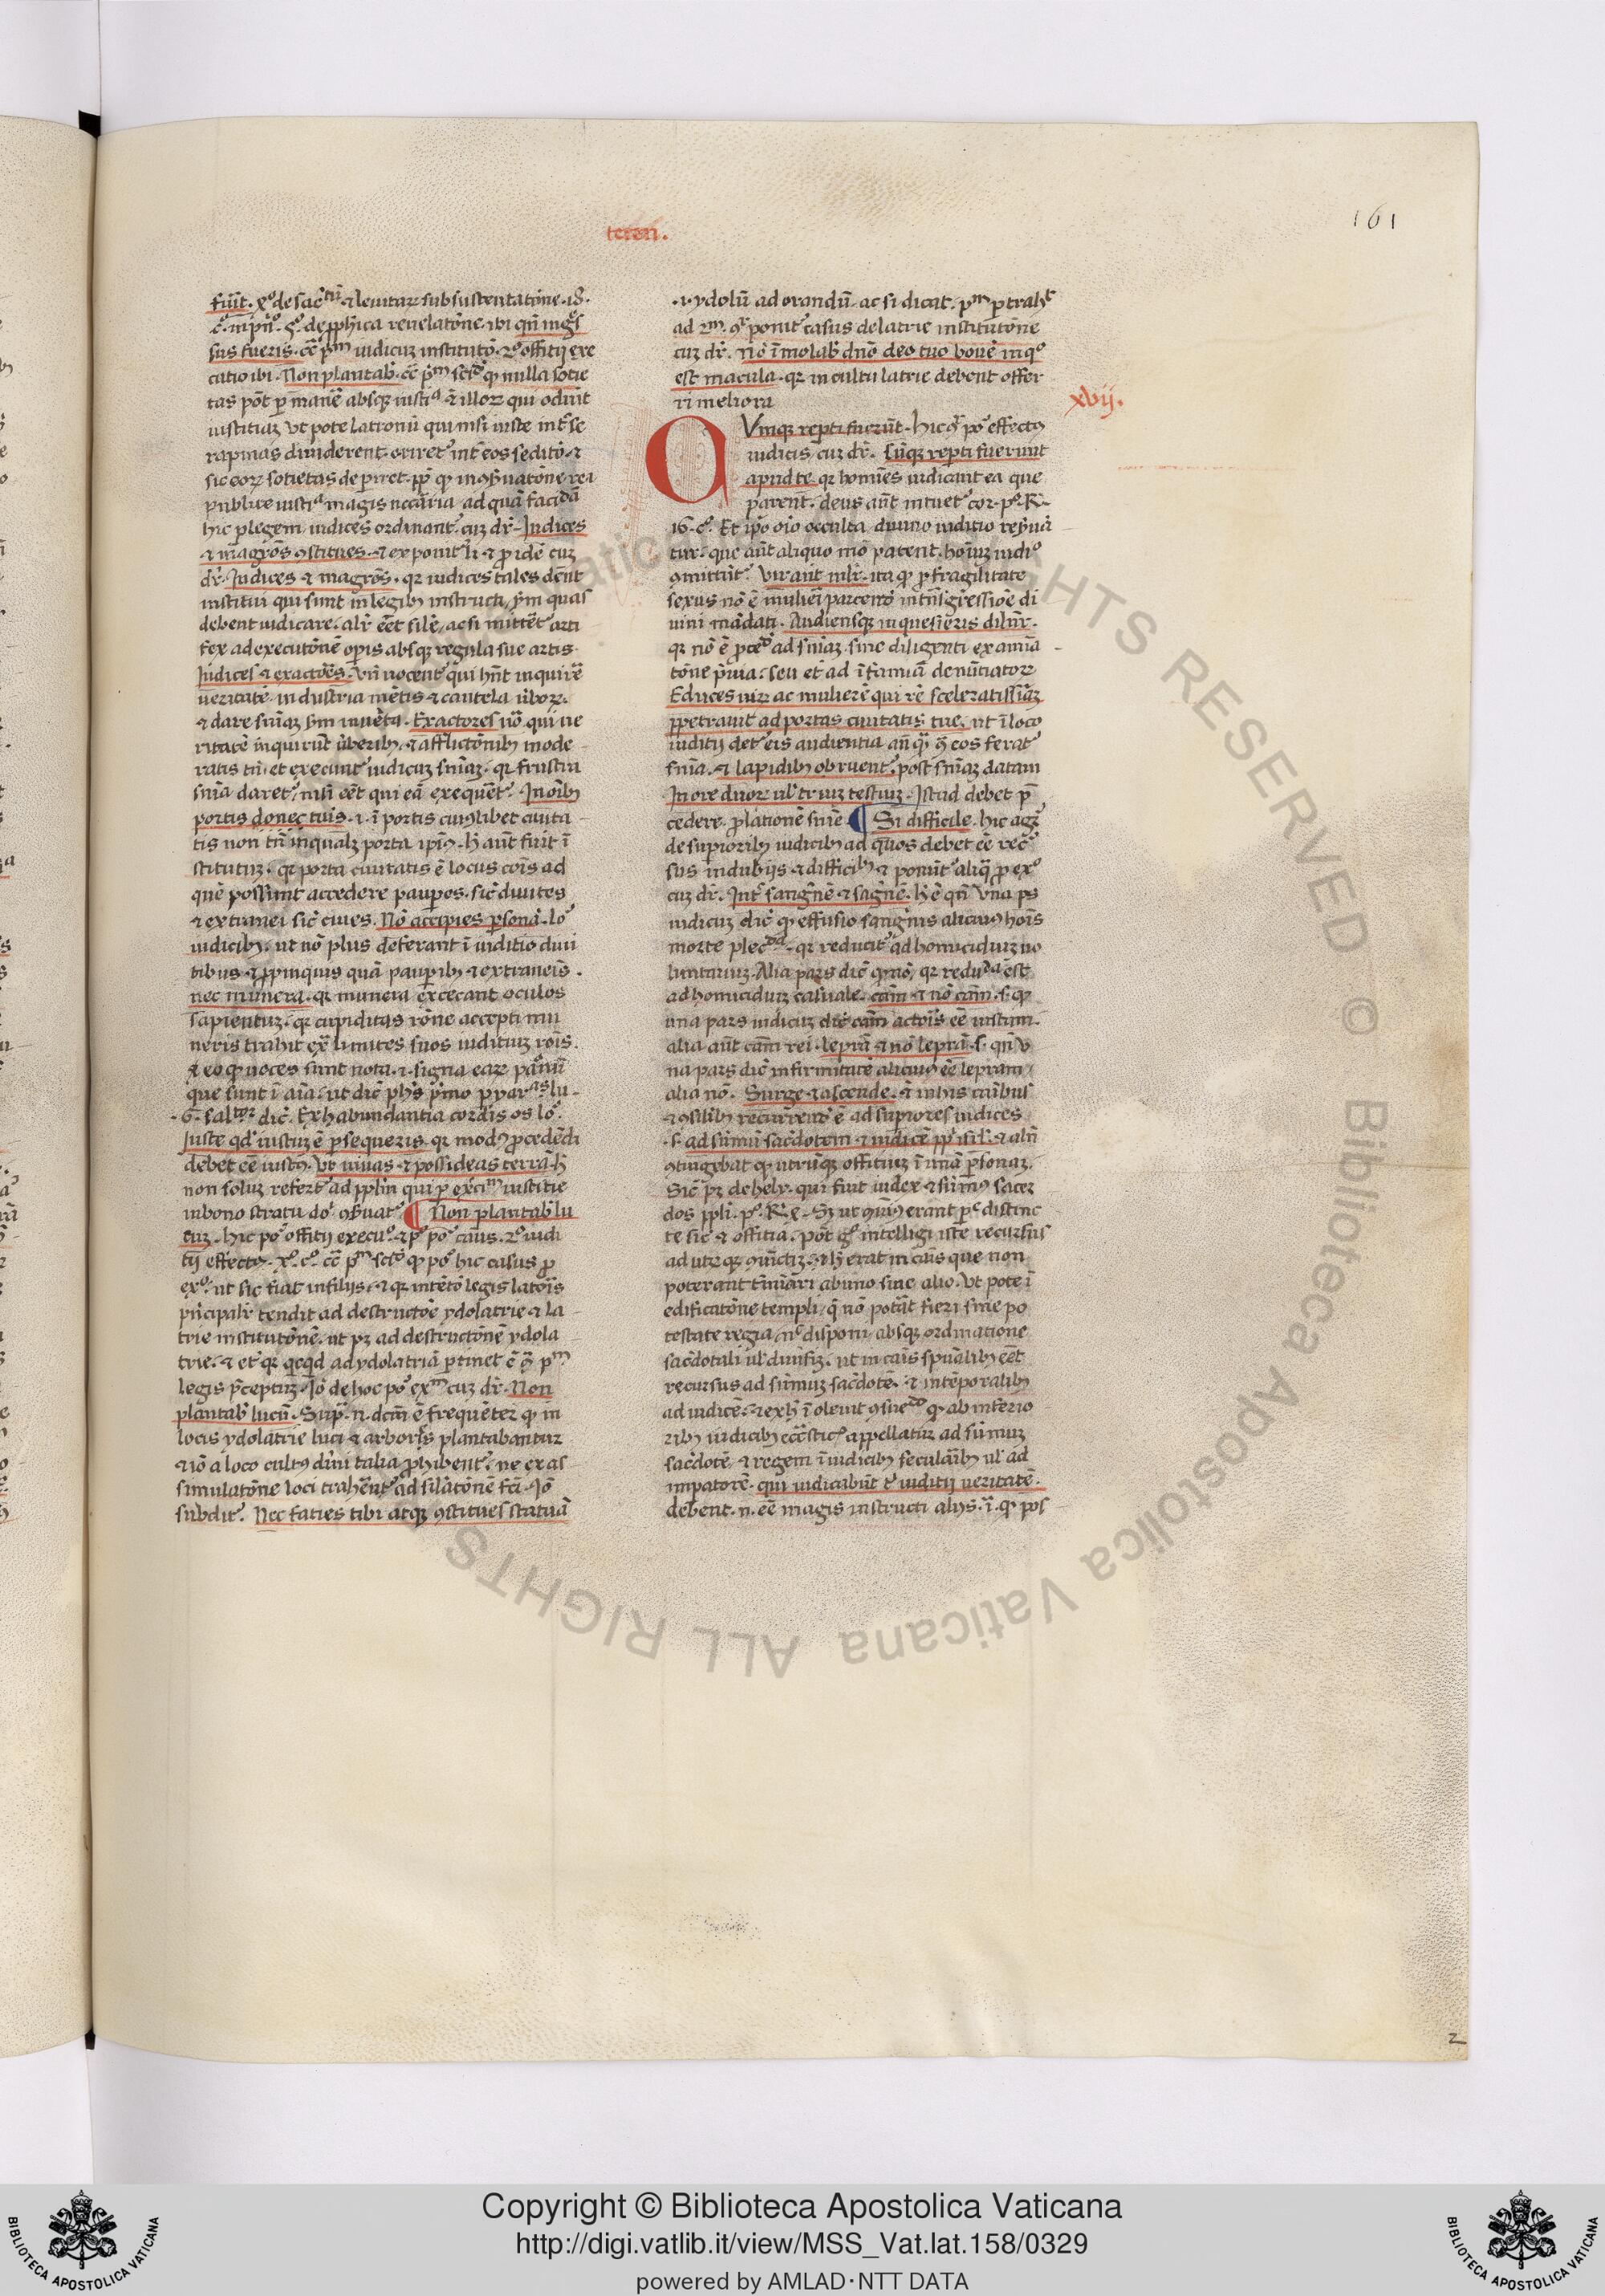 161
fuit. 2º de sac̄tū ⁊ leuitaꝝ subsustentatōne. 18.
c̄. in pn̄º. 3º de ꝓph̄ica reuelatōne. ibi qn̄ ingͦs
sus fueris. c̄c̄ pͫ iudicuz institutō. 2º offitij exe
cutio ibi. Non plantab. c̄c̄ p̄m sc̄dō ꝙ nulla sotie
tas pōt ꝑmanē absqꝫ iustiª ⁊ illoꝝ qui odiūt
iustitiaꝫ vt pote latronū qui nisi iuste int̄ se
rapinas diuiderent. oriret᷑ int̄ eos seditō. ⁊
sic eoꝝ sotietas depiret.
publice iustiª magis nccāria ad quā faciēdā
hic ꝑ legem iudices ordinant᷑ cuꝫ dr̄. Iudices
⁊ magrōs ꝯstitues. ⁊ exponit᷑ li ⁊ ꝑ idē cuꝫ
dr̄. Iudices ⁊ magrōs. qꝛ iudices tales dēnt
institui qui sunt in legibꝫ instructi, ẜm quas
debent iudicare. alr̄ eēt sil̄e, ac si mittēt᷑ arti
fex ad executōnē opis absqꝫ regula sue artis.
Iudices ⁊ exactōēs. vn̄ uocent᷑ qui hn̄t inquirē
ueritatē. industria mētis ⁊ cautela ūboꝝ.
⁊ dare sn̄iaꝫ ẜm inuēta. Exactores uō. qui ue
ritatē inquirūt ūberibꝫ. ⁊ afflictōnibꝫ mode
ratis tn̄. et execunt᷑ iudicuꝫ sn̄iaꝫ. qꝛ frustra
sn̄ia daret᷑, nisi eēt qui eā exequēt᷑. In oībꝫ
portis donec tuis. .i. ī portis cuiꝯlibet ciuita
tis non tn̄ in qualꝫ porta ipīꝯ. h̄ aūt fuit ī
stitutuꝫ. qꝛ porta ciuitatis ē locus cōīs ad
quē possunt accedere pauꝑes. sic̄ diuites
⁊ extranei sic̄ ciues. Nō accipies ꝑsonā. loͦ
iudicibꝫ. ut nō plus deferant ī iuditio diui
tibus ⁊ ꝓpinquis quā pauꝑibꝫ ⁊ extraneis.
nec munera. qꝛ munera excecant oculos
sapientuꝫ. qꝛ cupiditas rōne accepti mu
neris trahit ex̄ limites suos iudituꝫ rōis.
⁊ eo ꝙ uoces sunt nota. ⁊ signa eaꝝ
que sunt ī aīa. ut dic̄ ph̄s
.6. saltor dic̄. Ex habundantia cordis os loͦ.
Iuste qd̄ iustuꝫ ē ꝑsequeris. qꝛ modꝯ ꝓcedēdi
debet eē iustꝯ. Vt uiuas ⁊ possideas terrā. h̄
non soluꝫ refert᷑ ad pplm̄ qui ꝑ exc̄im̄ iustitie
in bono statu doͦ ꝯẜuat᷑. ¶ Non plantab̄ lu
cuꝫ. hic pōͦ offitij execuº. ⁊ pº pōͦ cāus. 2º iudi
tij effectꝯ.
exº. ut sic fiat in filijs. ⁊ qꝛ intētō legis latōis
pn̄cipalr̄ tendit ad destructōē ydolatrie ⁊ la
trie institutōnē. ut pꝫ ad destructōnē ydola
trie. ⁊ et̄ qꝛ q̄cqd̄ ad ydolatriā ꝑtinet
legis p̄ceptuꝫ. Iō de hoc pōͦ exm̄ cuꝫ dr̄. Non
plantab̄ lucū. Sup̄. n. dcm̄ ē frequēter ꝙ in
locis ydolatrie luci ⁊ arbores plantabantur
⁊ iō a loco cultꝯ diūi talia ꝓhibent᷑. ne ex as
simulatōne loci trahēnt᷑ ad silātōnē fc̄i. Iō
subdit᷑. Nec faties tibi atqꝫ ꝯstitues statuā
.i. ydolū ad orandū. ac si dicat. pͫ ꝑtrahͭ
ad 2ͫ. ꝯr ponit᷑ casus de latrie institutōne
cuꝫ dr̄. nō īmolab̄ dn̄o deo tuo bouē in qº
est macula. qꝛ in cultu latrie debent offer
ri meliora
xvij.
Vmqꝫ reꝑti fuerūt. hic ꝯr pōͦ effectꝯ
iuditij cuꝫ dr̄. Cūqꝫ reꝑti fuerunt
apud te. qꝛ homīes iudicant ea que
parent. deus aūt intuet᷑ cor. pº. R.
16. cº. Et ipō oīo occulta diuino iuditio reẜuā
tur. que aūt aliquo mō patent. hoīuꝫ iudiº
ꝯmittūt᷑. Vir aūt ml̄r. ita ꝙ ꝑ fragilitate
sexus nō ē mulieri parcendō in tn̄sgressiōē di
uini mādati. Audiensqꝫ inquesieris dilnr̄.
qꝛ nō ē ꝓcedō ad sn̄iaꝫ. sine diligenti examīa
tōne p̄uia. seu et̄ ad īfamiā denūtiatoꝝ
Educes uiꝝ ac mulierē qui rē sceleratissīaꝫ
ꝑpetrauit ad portas ciuitatis tue. ut ī loco
iuditij det᷑ eis audientia an̄ q̄ꝫ ꝯ eos ferat᷑
sn̄ia. ⁊ lapidibꝫ obruent᷑. post sn̄iaꝫ datam
In ore duoꝝ ul̓ triuꝫ testiuꝫ. Istud debet p̄
cedere ꝓlationē sn̄ie. ¶ Si difficile. hic agr̄
de supioribꝫ iudicibꝫ ad quos debet eē rec̄
sus in dubijs ⁊ difficibꝫ ⁊ ponūt᷑ aliq̄ ꝓ exº
cuꝫ dr̄. Int̄ sangnē ⁊ sāgnē. h̄ ē qn̄ vna ps
iudicuꝫ dic̄ ꝙ effusio sangnis alicuiꝯ hoīs
morte plec̄dā. qꝛ reducit᷑ ad homicidiuꝫ uo
luntariuꝫ. Alia pars dic̄ ꝙ nō, qꝛ reducēda ēst
ad homicidiuꝫ casuale. cām ⁊ nō cām. s. ꝙ
una pars iudicuꝫ dic̄ cām actōis eē iustam.
alia aūt cām rei. leprā ⁊ nō leprā. s. qn̄ v
na pars dic̄ infirmitatē alicuiꝯ eē lepram,
alia nō. Surge ⁊ ascende. qꝛ in his casibus
⁊ ꝯsilibꝫ recurrendō ē ad supiores iudices
.s. ad sūmū sac̄dotem ⁊ iudicē ppl̓i isrl̓. ⁊ aliqn̄
ꝯtingebat ꝙ utrūqꝫ offitiuꝫ ī unā ꝑsonaꝫ.
Sic̄ pꝫ de hely. qui fuit iudex ⁊ sūmꝯ sacer
dos ppl̓i. pº. R. Sꝫ ut erant distinc
te sic̄ ⁊ offitia. pōt gͦ intelligi iste recursus
ad utrūqꝫ ꝯiūctiꝫ. ⁊ h̄ erat in cāis que non
poterant t̄miāri ab uno sine alio. Vt pote ī
edificatōne templi, q̄ nō potāt fieri sine po
testate regia, nͨ disponi absqꝫ ordinatione
sac̄dotali ul̓ diuisiꝫ. ut in cāis spūalibꝫ eēt
recursus ad sūmuꝫ sac̄dotē. ⁊ in tēporalibꝫ
ad iudicē. ⁊ ex h̄ īoleuit ꝯsuedō ꝙ ab inferio
ribꝫ iudicibꝫ ecc̄sticͥ appellatur ad sūmuꝫ
sac̄dotē, ⁊ regem ī iudicibꝫ secularībꝫ ul̓ ad
impatorē. qui iudicabūt t̄ iuditij ueritatē.
debent. n. eē magis instructi alijs.
Copyright © Biblioteca Apostolica Vaticana
http://digi.vatlib.it/view/MSS_Vat.lat.158/0329
powered by AMLAD·NTT DATA
BIBLIOTECA APOSTOLICA VATICANA
BIBLIOTECA APOSTOLICA VATICANA
© Biblioteca Apostolica Vaticana ALL RIGHTS RESERVED